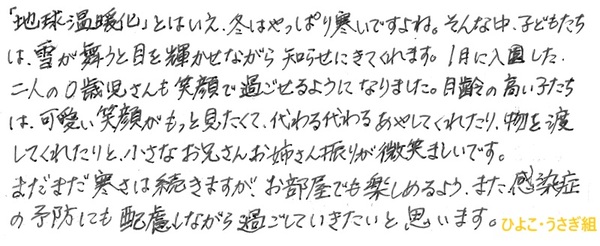 「地球温暖化」とはいえ、冬はやっぱり寒いですよね。そんな中、子どもたち
は、雪が舞うと目を輝かせながら知らせにきてくれます。1月に入園した、
二人の0歳児さんも笑顔で過ごせるようになりました。月齢の高い子たち
は、可愛い笑顔がもっと見たくて、代わる代わるあやしてくれたり、物を渡
してくれたりと、小さなお兄さんお姉さん振りが微笑ましいです。
まだまだ寒さは続きますが、お部屋でも楽しめるよう、また、感染症
の予防にも配慮しながら過ごしていきたいと思います。ひよこ・うさぎ組